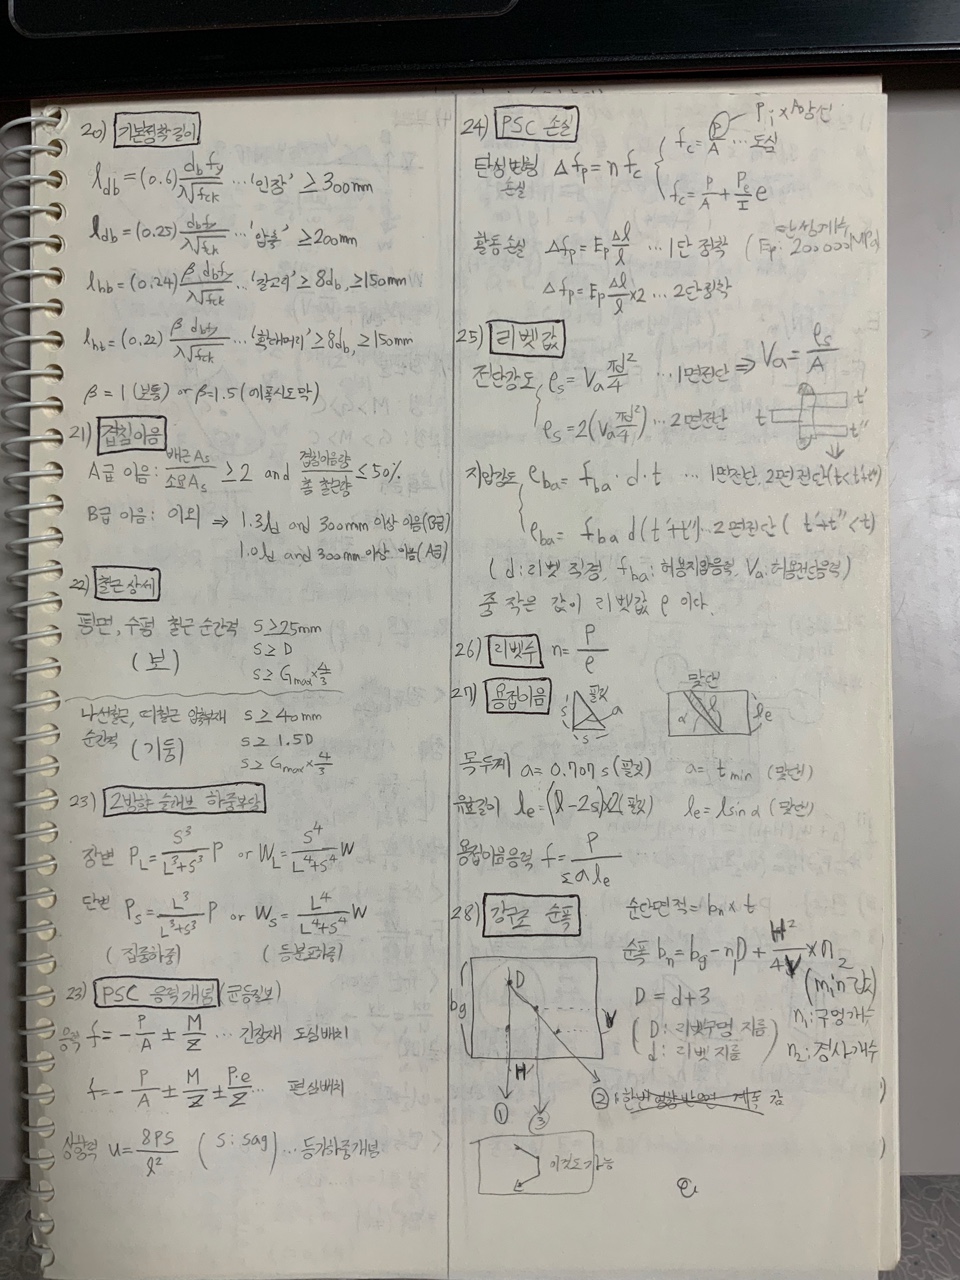 20) 기본정착길이
l_db = (0.6) d_b f_y / λ√f_ck … '인장' ≥ 300mm
l_db = (0.25) d_b f_y / λ√f_ck … '압축' ≥ 200mm
l_hb = (0.24) β d_b f_y / λ√f_ck … '갈고리' ≥ 8d_b, ≥ 150mm
l_ht = (0.22) β d_b f_y / λ√f_ck … '확대머리' ≥ 8d_b, ≥ 150mm
β = 1 (보통) or β = 1.5 (에폭시도막)
21) 겹침이음
A급 이음: 배근A_s / 소요A_s ≥ 2 and 겹침이음량 / 총 철근량 ≤ 50%
B급 이음: 이외 ⇒ 1.3l_d and 300mm 이상 이음(B급)
1.0l_d and 300mm 이상 이음(A급)
22) 철근 상세
평면, 수평 철근 순간격 S ≥ 25mm
(보) S ≥ D
S ≥ G_max × 4/3
나선철근, 띠철근 압축부재 S ≥ 40mm
순간격 (기둥) S ≥ 1.5D
S ≥ G_max × 4/3
23) 2방향 슬래브 하중부담
장변 P_L = S³ / L³+S³ P or W_L = S⁴ / L⁴+S⁴ W
단변 P_S = L³ / L³+S³ P or W_S = L⁴ / L⁴+S⁴ W
(집중하중) (등분포하중)
23) PSC 응력개념 (균등질보)
응력 f = - P/A ± M/Z … 긴장재 도심배치
f = - P/A ± M/Z ± P·e/Z … 편심배치
상향력 u = 8PS / l² (S: sag) … 등가하중개념
24) PSC 손실
P_i × A강선
탄성변형 손실 Δf_p = n f_c { f_c = P/A … 도심
f_c = P/A + P_e/I e
탄성계수
활동손실 Δf_p = E_p Δl/l … 1단 정착 (E_p: 200000MPa)
Δf_p = E_p Δl/l × 2 … 2단정착
25) 리벳값
전단강도 ρ_s = V_a πd²/4 … 1면전단 ⇒ V_a = ρ_s / A
ρ_s = 2(V_a πd²/4) … 2면전단
t t' t''
지압강도 ρ_ba = f_ba · d · t … 1면전단, 2면전단(t<t'+t'')
ρ_ba = f_ba d (t'+t'') … 2면전단 (t'+t''<t)
(d: 리벳 직경, f_ba: 허용지압응력, V_a: 허용전단응력)
중 작은 값이 리벳값 ρ 이다.
26) 리벳수 n = P/ρ
27) 용접이음 s s 필렛 a 맞댄 α l l_e
목두께 a = 0.707s (필렛) a = t_min (맞댄)
유효길이 l_e = (l-2s)×2 (필렛) l_e = l sinα (맞댄)
용접이음응력 f = P / Σa l_e
28) 강구조 순폭 순단면적 = b_n × t
순폭 b_n = b_g - n₁D + H²/4V × n₂
(min값)
D = d+3
(D: 리벳구멍 지름
d: 리벳 지름)
n₁: 구멍개수
n₂: 경사개수
b_g D V H
① ③ ②
이것도가능
e